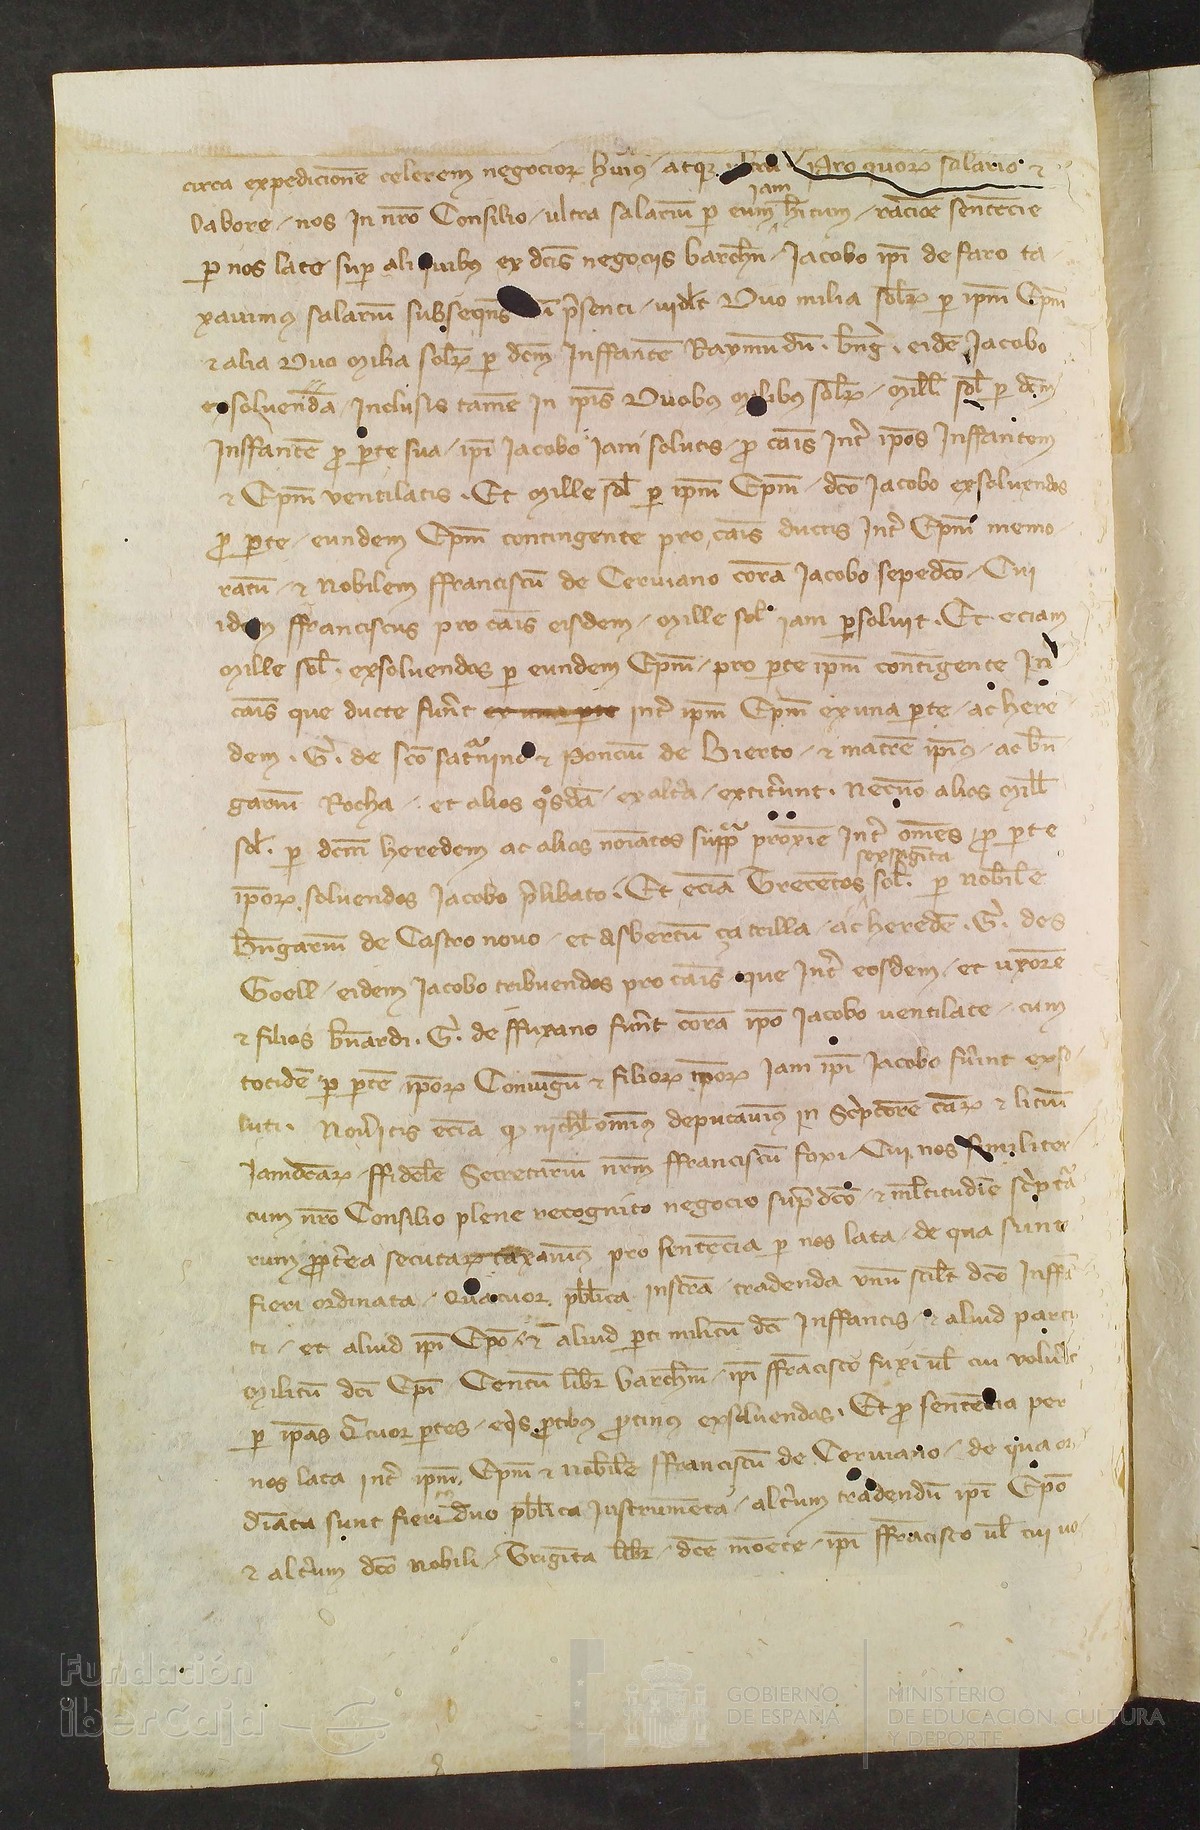 circa expedicionē celerem negocioꝝ hui9 / atqꝫ ult̄a / Pro quoꝝ salario ⁊
labore / nos in nr̄o Consilio / ultra salariū ꝑ eum iam hītum / rac̄ioē sentēcie
ꝑ nos late suꝑ aliquibꝰ ex dc̄is negociis barchn̄ / Jacobo ip̄i de faro ta
xauimꝰ salariū subseqn̄s p̄senti / vidlt̄ Duo milia solꝝ ꝑ ip̄m Ep̄m
⁊ alia Duo Milia solꝝ ꝑ dcm̄ Inffantē Raymundū . bn̄g̃ . eidē Jacobo
exsoluenda / Inclusis tamē in ip̄is Duobꝰ Milibus solꝝ / mill̄ sol̄ ꝑ dcm̄
Inffantē ꝓ ꝑte sua / ip̄i Jacobo Jam solutis / ꝓ cāis Int̄ ip̄os Inffantem
⁊ Ep̄m ventilatis . Et Mille sol̄ ꝑ ip̄m Ep̄m / dc̄o Jacobo exsoluendos
ꝓ ꝑte / eundem Ep̄m contingente pro cāis ductis Int̄ Ep̄m memo
ratū / ⁊ Nobilem ffranciscū de Ceruiano corā Jacobo sepedc̄o / Cui
idem ffranciscus pro cāis eisdem / Mille sol̄ iam ꝑsoluit . Et eciam
Mille sol̄ . exsoluendos ꝑ eundem Ep̄m / pro ꝑte ip̄m contingente In
cāis que ducte fuer̄t ex una ꝑte int̄ ip̄m Ep̄m ex una ꝑte / ac here
dem . G̃ . de sc̄o saturnino ⁊ Ponciū de Bierto / ⁊ matrē ip̄iꝰ / ac bn̄
gariū Rocha / et alios qosdā / ex alt̄a / extiter̄unt . Necnō alios mill̄
sol̄ . ꝑ dcm̄ heredem ac alios noiatos supra proxīe Int̄ omēs / ꝓ ꝑte
ip̄oꝝ soluendos Jacobo p̄libato . Et eciā Trecētos sexaginta sol̄ . ꝑ Nobilē
bn̄gariū de Castro nouo / et Asbertū ça trilla / ac heredē . G̃ . des
Goell / eidem Jacobo tribuendos pro cāis que Int̄ eosdem / et uxorē
⁊ filios bn̄ardi . G̃ . de ffuxano fuer̄t corā ip̄o Jacobo ventilate / cum
totidē ꝑ ꝑtē ip̄oꝝ Coniugū ⁊ filioꝝ ip̄oꝝ Jam ip̄i Jacobo fuer̄int exso
luti . Nou̓itis eciā ꝙ nichl̄ominꝰ deputauimꝰ in Sc̓ptorē cāꝝ ⁊ litiū
Jamdc̄aꝝ / ffidelē Secretariū nr̄m ffranciscū foxi / Cui nos similiter
cum nr̄o Consilio plene recognito negocio sup̄dc̄o / ⁊ ml̄titudīe sc̓pta
rum ꝓpt̄ea secutaꝝ taxauimꝰ pro sentēcia ꝑ nos lata / de qua sunt
fieri ordinata / Quatuor pb̄lica instr̄a / tradenda vnū scilt̄ dc̄o Inffā
ti / et aliud ip̄i Ep̄o / ⁊ aliud ꝑti militū dc̄i Inffantis / ⁊ aliud parti
Militū dc̄i Ep̄i / Centū libr̄ barchn̄ / ip̄i ffrācisco fuxi ul̄ cui voluit̓
ꝑ ip̄as Qtuor ꝑtes / eqͥs ꝑtibus ꝓtinus exsoluendas . Et ꝓ sentēcia per
nos lata int̄ ip̄m Ep̄m ⁊ Nobilē ffranciscū de Ceruiano / de qua or
dīata sunt fieri duo pb̄lica Instrumēta / alt̄um tradendū ip̄i Ep̄o
⁊ alt̄um dc̄o Nobili / Trigīta libr̄ / dc̄e monēte / ip̄i ffrācisco ul̄ cui uo
Fundación
iberCaja
GOBIERNO
DE ESPAÑA
MINISTERIO
DE EDUCACIÓN, CULTURA
Y DEPORTE